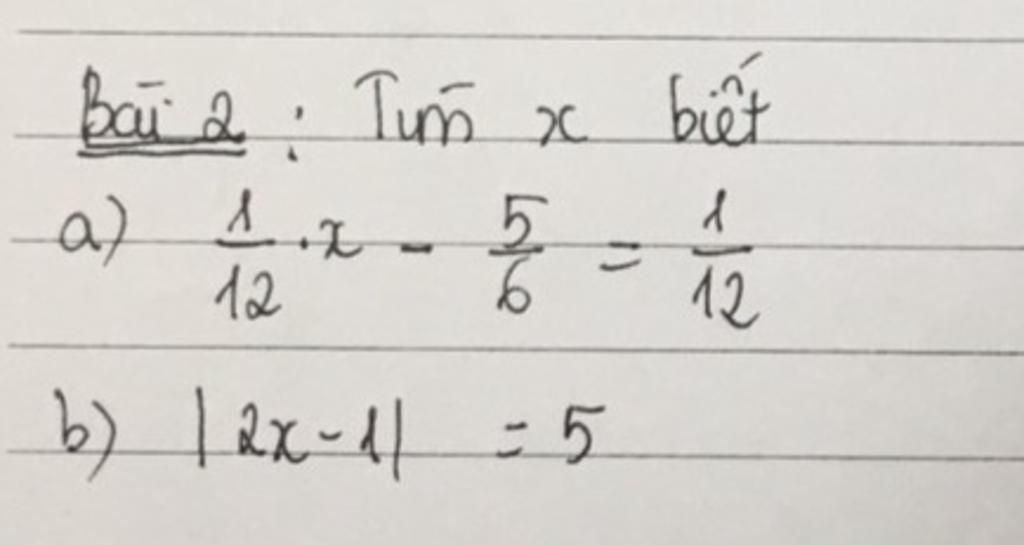 Bài 2 : Tìm x biết
a) 1/12 . x - 5/6 = 1/12
b) |2x - 1| = 5